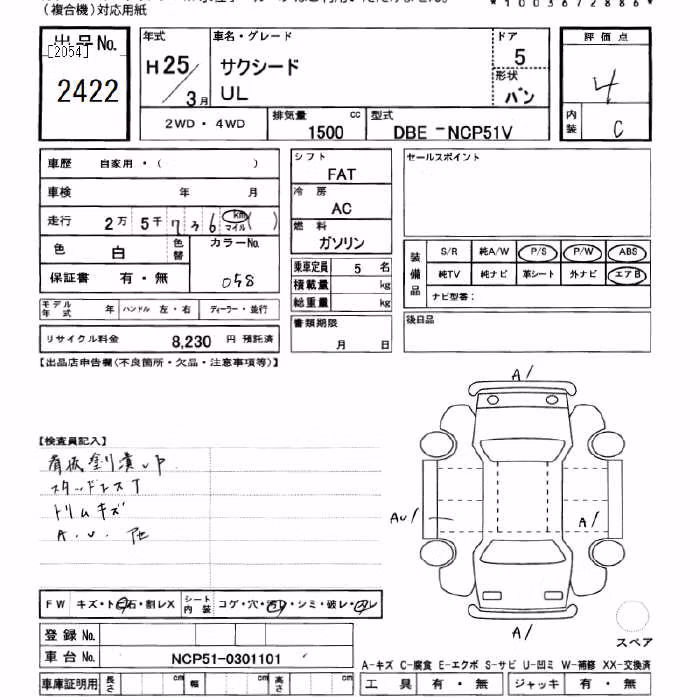 (複合機)対応用紙
*1003672886*
出品No.
[2054]
2422
年式
H25/3月
車名・グレード
サクシード
UL
ドア
5
形状
バン
評価点
4
内装
C
2WD・4WD
排気量 cc
1500
型式
DBE-NCP51V
車歴 自家用・( )
車検 年 月
走行 2万 5千 7 3 6 km マイル ( )
色 白 色替 カラーNo.
058
保証書 有・無
モデル年式 年 ハンドル 左・右 ディーラー・並行
リサイクル料金 8,230 円 預託済
シフト
FAT
冷房
AC
燃料
ガソリン
乗車定員 5 名
積載量 kg
総重量 kg
書類期限
月 日
セールスポイント
装備品
S/R 純A/W P/S P/W ABS
純TV 純ナビ 革シート 外ナビ エアB
ナビ型番:
後日品
【出品店申告欄(不良箇所・欠品・注意事項等)】
【検査員記入】
トリムキズ
A.U. 他
FW キズ・ト 石・割レX シート内装 コゲ・穴・汚レ・シミ・破レ・スレ
登録No.
車台No. NCP51-0301101
車庫証明用 長さ cm 幅 cm 高さ cm
A/
AU/
A/
A/
スペア
A-キズ C-腐食 E-エクボ S-サビ U-凹ミ W-補修 XX-交換済
工具 有・無 ジャッキ 有・無